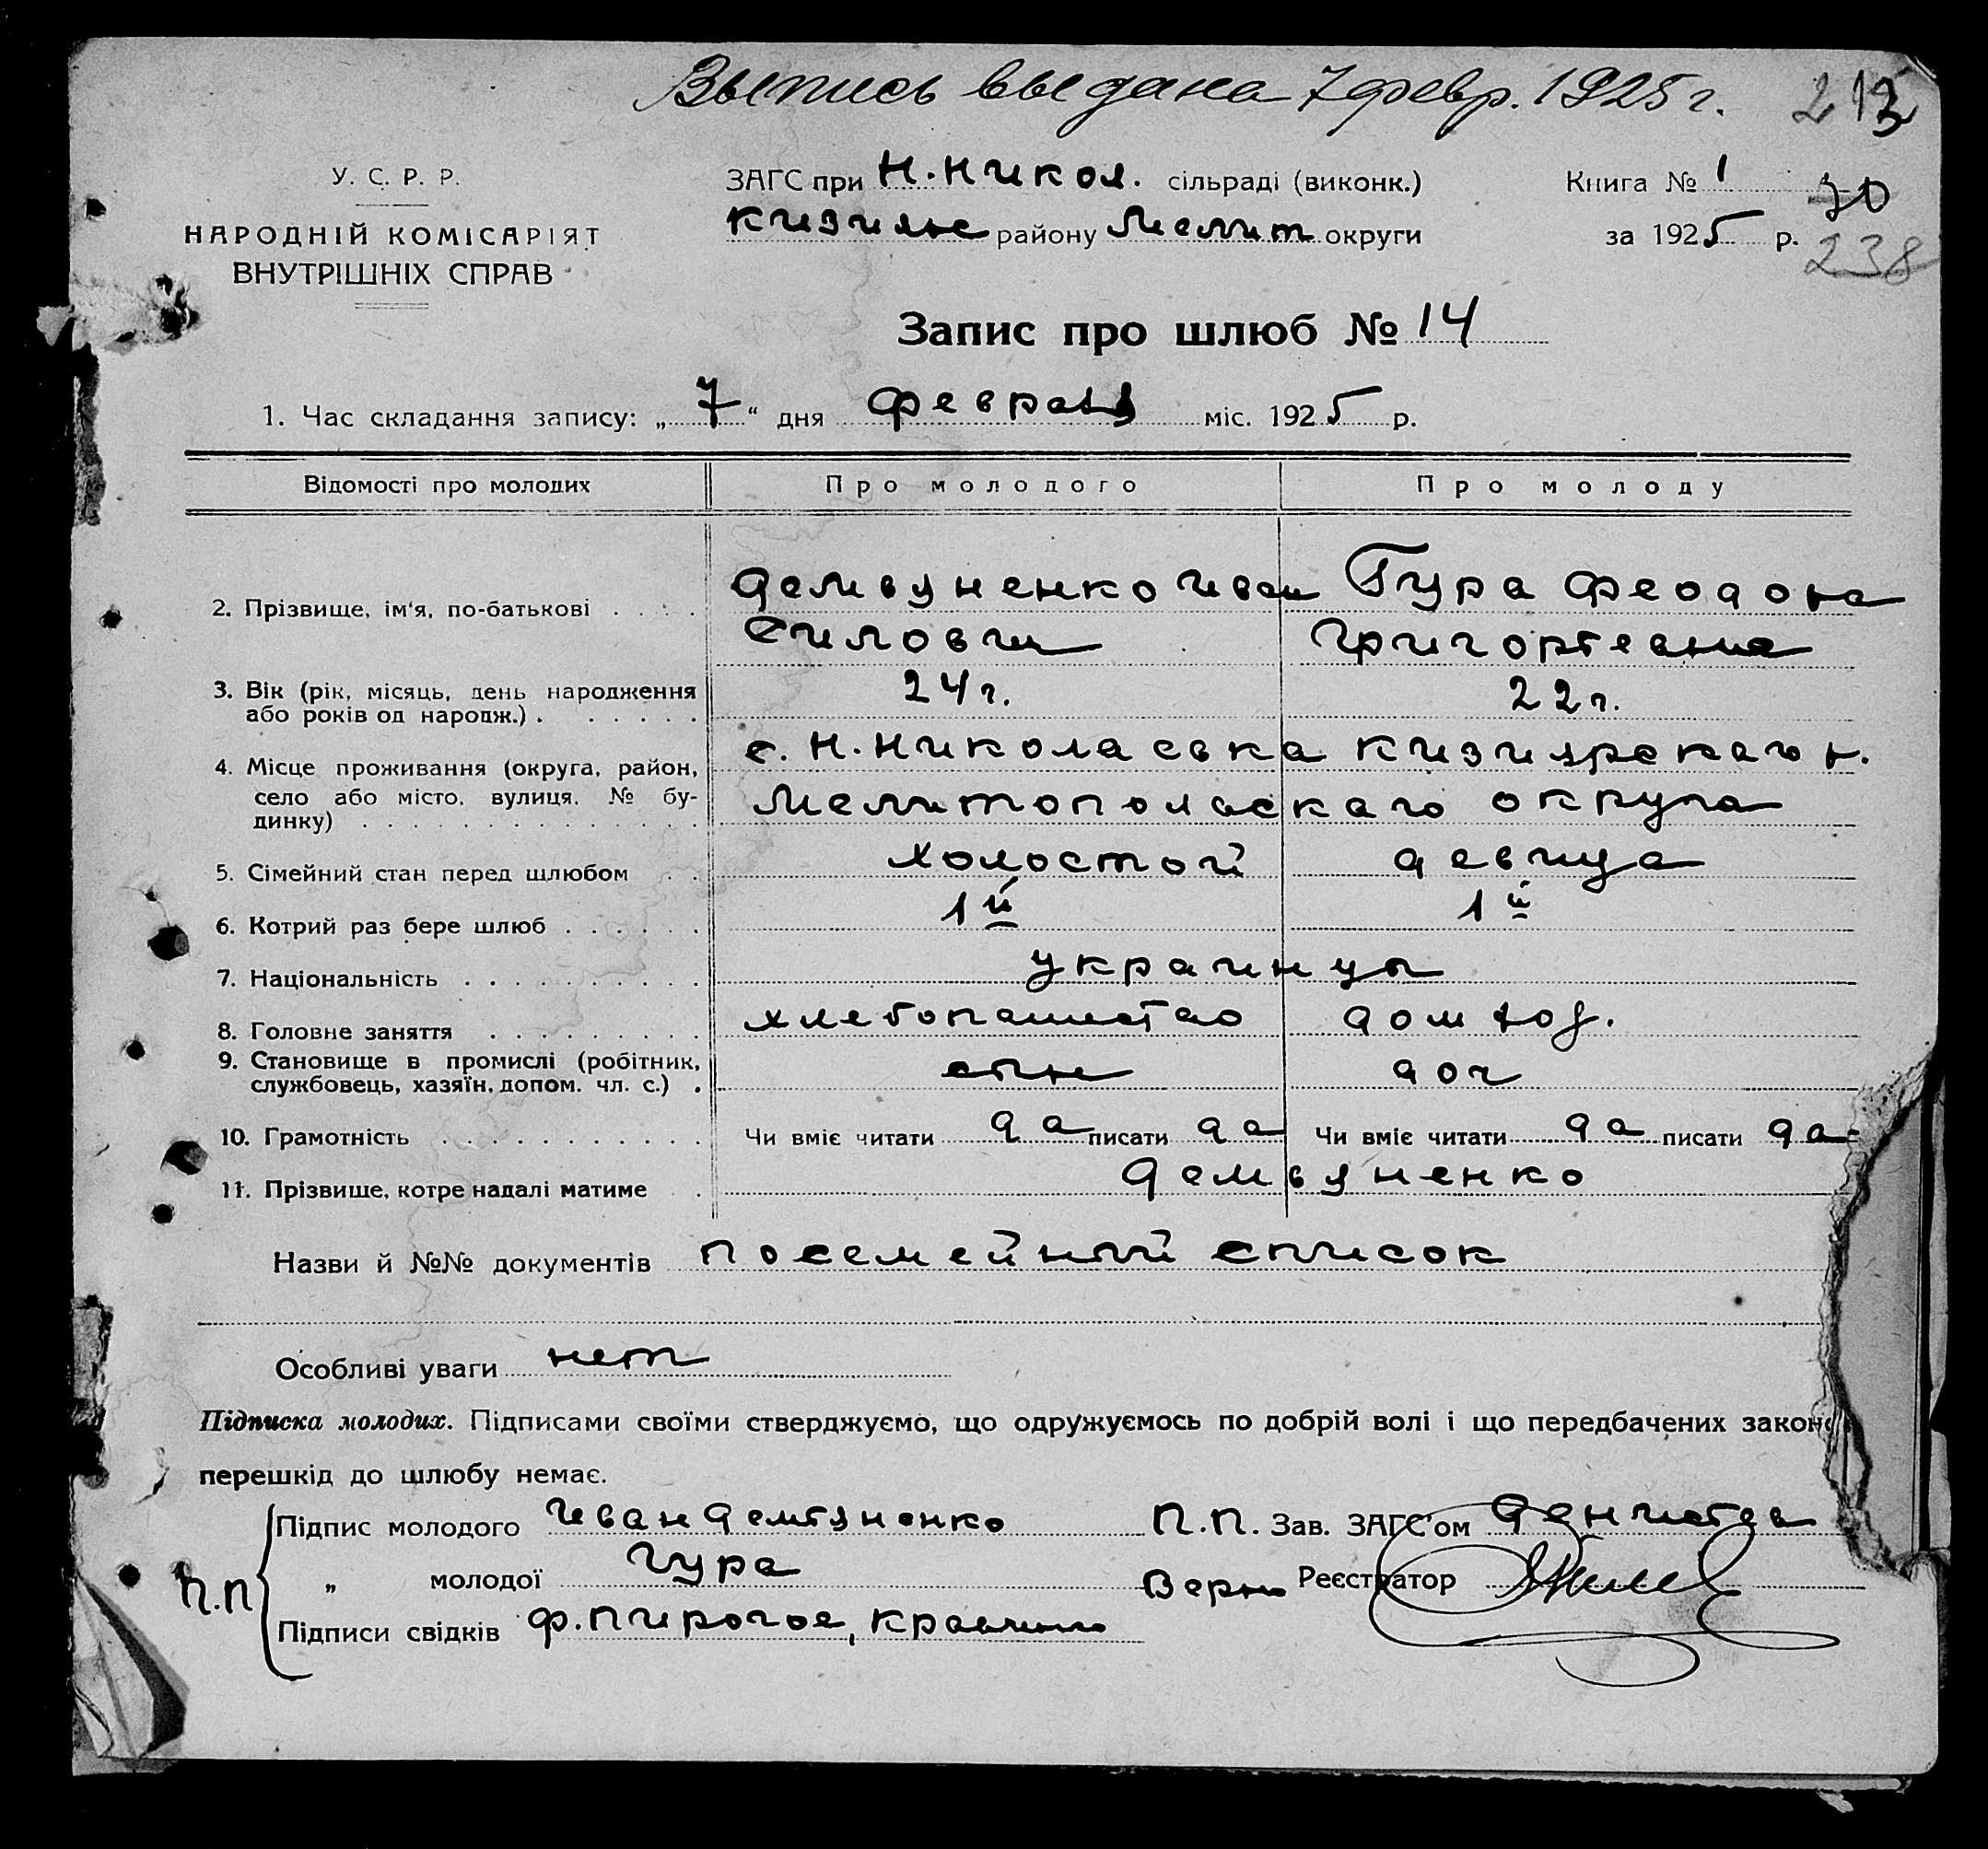 Выпись выдана 7 февр. 1925 г. 213
У. С. Р. Р.
НАРОДНІЙ КОМІСАРІЯТ
ВНУТРІШНІХ СПРАВ
ЗАГС при Н. Никол. сільраді (виконк.)
Кизильс району Мелит округи
Книга № 1
30
за 1925 р.
238
Запис про шлюб № 14
1. Час складання запису: „ 7 “ дня февраля міс. 1925 р.
Відомості про молодих Про молодого Про молоду
2. Прізвище, ім'я, по-батькові . . . . Демьяненко Иван Гура Феодона
Силович Григорьевна
3. Вік (рік, місяць, день народження або років од народж.) . 24 г. 22 г.
4. Місце проживання (округа, район, село або місто, вулиця, № будинку) с. Н. Николаевка Кизиярскаго р.
Мелитопольскаго округа
5. Сімейний стан перед шлюбом . . холостой девица
6. Котрий раз бере шлюб . . . . . . 1й 1й
7. Національність . . . . . . . . . . украинцы
8. Головне заняття . . . . . . . . . хлебопашество дом хоз.
9. Становище в промислі (робітник, службовець, хазяїн, допом. чл. с.) . сын доч
10. Грамотність . . . . . . . . . . . Чи вміє читати да писати да Чи вміє читати да писати да
11. Прізвище, котре надалі матиме . . Демьяненко
Назви й №№ документів посемейный список
Особливі уваги нет
Підписка молодих. Підписами своїми стверджуємо, що одружуємось по добрій волі і що передбачених законо
перешкід до шлюбу немає.
П.П. Підпис молодого Иван Демьяненко П.П. Зав. ЗАГС'ом
„ молодої Гура Верно Реєстратор
Підписи свідків Ф. Пирогов,